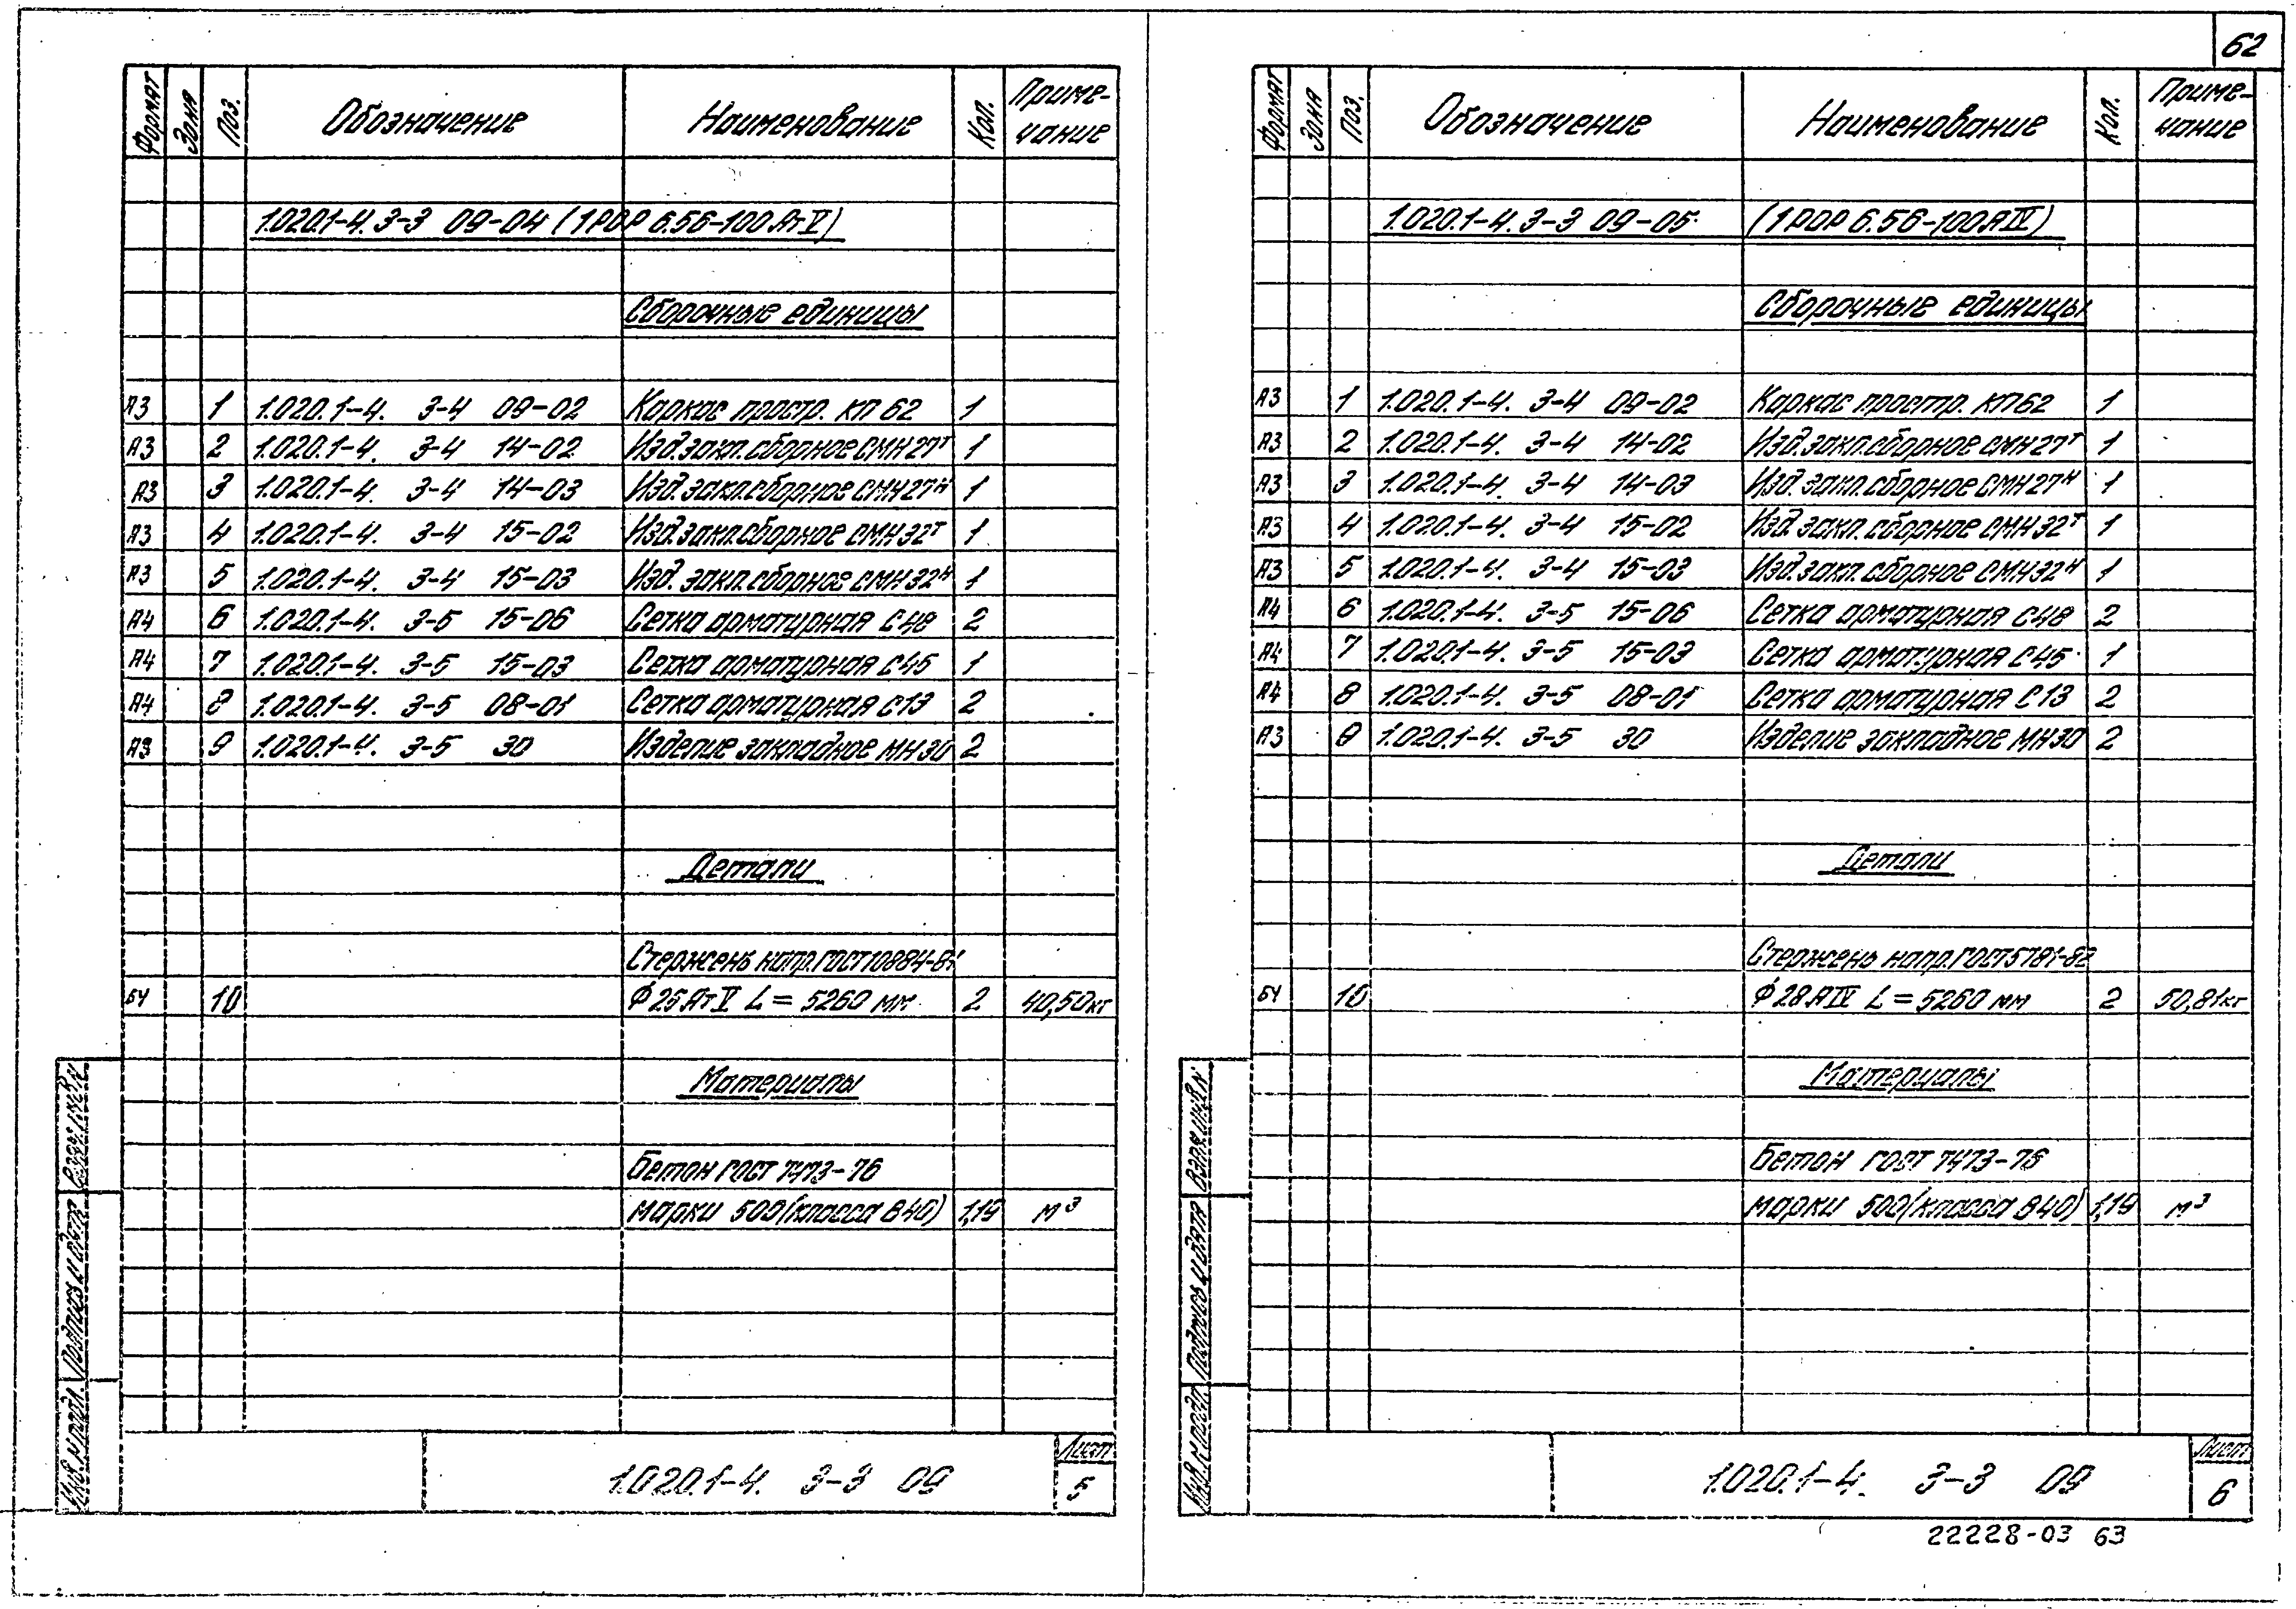 62
Формат Зона Поз. Обозначение Наименование Кол. Приме-
чание
1.020.1-4. 3-3 09-04 (1РОР 6.56-100 АтV)
Сборочные единицы
А3 1 1.020.1-4. 3-4 09-02 Каркас простр. КП 62 1
А3 2 1.020.1-4. 3-4 14-02 Изд.закл.сборное СМН 27т 1
А3 3 1.020.1-4. 3-4 14-03 Изд.закл.сборное СМН 27н 1
А3 4 1.020.1-4. 3-4 15-02 Изд.закл.сборное СМН 32т 1
А3 5 1.020.1-4. 3-4 15-03 Изд. закл.сборное СМН 32н 1
А4 6 1.020.1-4. 3-5 15-06 Сетка арматурная С48 2
А4 7 1.020.1-4. 3-5 15-03 Сетка арматурная С45 1
А4 8 1.020.1-4. 3-5 08-01 Сетка арматурная С13 2
А3 9 1.020.1-4. 3-5 30 Изделие закладное МН 30 2
Детали
Стержень напр.ГОСТ 10884-81
БЧ 10 Ф 25 АтV L = 5260 мм 2 40,50кг
Материалы
Бетон ГОСТ 7473-76
марки 500(класса В40) 1,19 м³
Инв.N подл. Подпись и дата Взам.инв.N
1.020.1-4. 3-3 09
Лист
5
Формат Зона Поз. Обозначение Наименование Кол. Приме-
чание
1.020.1-4. 3-3 09-05 (1РОР 6.56-100АIV)
Сборочные единицы
А3 1 1.020.1-4. 3-4 09-02 Каркас простр. КП62 1
А3 2 1.020.1-4. 3-4 14-02 Изд.закл.сборное СМН 27т 1
А3 3 1.020.1-4. 3-4 14-03 Изд.закл.сборное СМН 27н 1
А3 4 1.020.1-4. 3-4 15-02 Изд.закл.сборное СМН 32т 1
А3 5 1.020.1-4. 3-4 15-03 Изд.закл.сборное СМН 32н 1
А4 6 1.020.1-4. 3-5 15-06 Сетка арматурная С48 2
А4 7 1.020.1-4. 3-5 15-03 Сетка арматурная С45 1
А4 8 1.020.1-4. 3-5 08-01 Сетка арматурная С13 2
А3 9 1.020.1-4. 3-5 30 Изделие закладное МН30 2
Детали
Стержень напр.ГОСТ5781-82
БЧ 10 Ф 28 АIV L = 5260 мм 2 50,81кг
Материалы
Бетон ГОСТ 7473-76
марки 500(класса В40) 1,19 м³
Инв.N подл. Подпись и дата Взам.инв.N
1.020.1-4. 3-3 09
Лист
6
22228-03 63